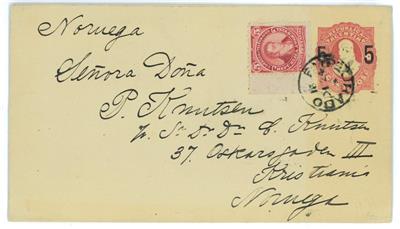 Noruega
Señora Doña
P. Knutsen
p. Sr Dr Dn L. Knutsen
37, Oskarsgaden III
Kristiania
Noruega
5 5